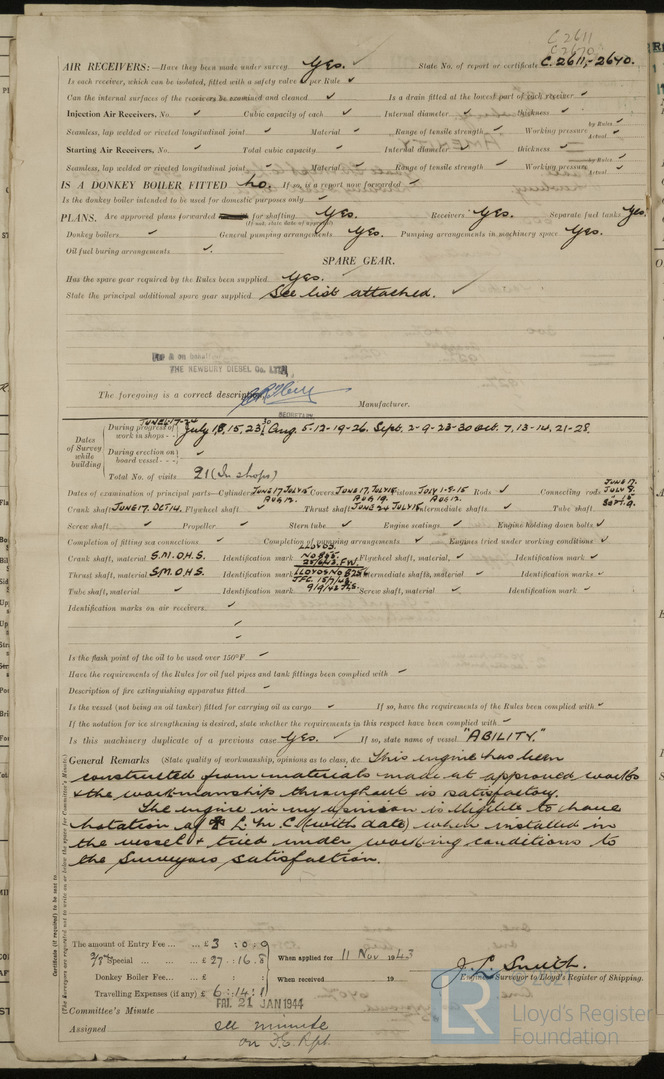 C 2611
C 2670
AIR RECEIVERS:—Have they been made under survey Yes. ✓ State No. of report or certificate C. 2611,-2640.
Is each receiver, which can be isolated, fitted with a safety valve as per Rule ✓
Can the internal surfaces of the receivers be examined and cleaned ✓ Is a drain fitted at the lowest part of each receiver ✓
Injection Air Receivers, No. ✓ Cubic capacity of each ✓ Internal diameter ✓ thickness ✓
Seamless, lap welded or riveted longitudinal joint ✓ Material ✓ Range of tensile strength ✓ Working pressure by Rules ✓ Actual ✓
Starting Air Receivers, No. ✓ Total cubic capacity ✓ Internal diameter ✓ thickness ✓
Seamless, lap welded or riveted longitudinal joint ✓ Material ✓ Range of tensile strength ✓ Working pressure by Rules ✓ Actual ✓
IS A DONKEY BOILER FITTED No. If so, is a report now forwarded ✓
Is the donkey boiler intended to be used for domestic purposes only ✓
PLANS. Are approved plans forwarded for shafting Yes. Receivers Yes. Separate fuel tanks Yes.
(If not, state date of approval)
Donkey boilers ✓ General pumping arrangements Yes. Pumping arrangements in machinery space Yes.
Oil fuel buring arrangements ✓.
SPARE GEAR.
Has the spare gear required by the Rules been supplied Yes.
State the principal additional spare gear supplied See list attached. ✓
For & on behalf
THE NEWBURY DIESEL Co. LTD.
The foregoing is a correct description
Manufacturer.
SECRETARY
Dates of Survey while building
During progress of work in shops - - JUNE 4-17-24 July 1, 8, 15, 23, 30 Aug. 5-12-19-26. Sept. 2-9-23-30 Oct. 7, 13-14, 21-28.
During erection on board vessel - - - ✓
Total No. of visits 21 (In shops)
Dates of examination of principal parts—Cylinders JUNE 17, JULY 15, AUG 12. Covers JUNE 17, JULY 15, AUG 19. Pistons JULY 1-8-15 AUG 12. Rods ✓ Connecting rods JUNE 17. JULY 8. " 15 SEPT. 9.
Crank shaft JUNE 17, OCT 14. Flywheel shaft ✓ Thrust shaft JUNE 24 JULY 15 Intermediate shafts ✓ Tube shaft ✓
Screw shaft ✓ Propeller ✓ Stern tube ✓ Engine seatings ✓ Engine holding down bolts ✓
Completion of fitting sea connections ✓ Completion of pumping arrangements ✓ Engines tried under working conditions ✓
Crank shaft, material S.M.O.H.S. Identification mark LLOYDS. No 865 25/6/43. F.W. Flywheel shaft, material ✓ Identification mark ✓
Thrust shaft, material S.M.O.H.S. Identification mark LLOYDS No 8256 JFC. 15/7/43. Intermediate shafts, material ✓ Identification marks ✓
Tube shaft, material ✓ Identification mark 9/9/43 Screw shaft, material ✓ Identification mark ✓
Identification marks on air receivers ✓
✓
✓
Is the flash point of the oil to be used over 150°F ✓
Have the requirements of the Rules for oil fuel pipes and tank fittings been complied with ✓
Description of fire extinguishing apparatus fitted ✓
Is the vessel (not being an oil tanker) fitted for carrying oil as cargo ✓ If so, have the requirements of the Rules been complied with ✓
If the notation for ice strengthening is desired, state whether the requirements in this respect have been complied with ✓
Is this machinery duplicate of a previous case Yes. If so, state name of vessel "ABILITY."
General Remarks (State quality of workmanship, opinions as to class, &c. This engine has been
constructed from materials made at approved works
& the workmanship throughout is satisfactory.
The engine in my opinion is eligible to have
notation of L.M.C. (with date) when installed in
the vessel & tried under working conditions to
the Surveyors satisfaction.
Certificate (if required) to be sent to
(The Surveyors are requested not to write on or below the space for Committee's Minute.)
The amount of Entry Fee ... £ 3 : 0 : 0
Special ... £ 27 : 16 : 8
Donkey Boiler Fee... £ : :
Travelling Expenses (if any) £ 6 : 14 : 1
When applied for 11 Nov 1943
When received 19
J. L. Smith.
Engineer Surveyor to Lloyd's Register of Shipping.
Committee's Minute FRI. 21 JAN 1944
Assigned See minute
on F.E. Rpt.
© 2021
LR
Lloyd's Register
Foundation